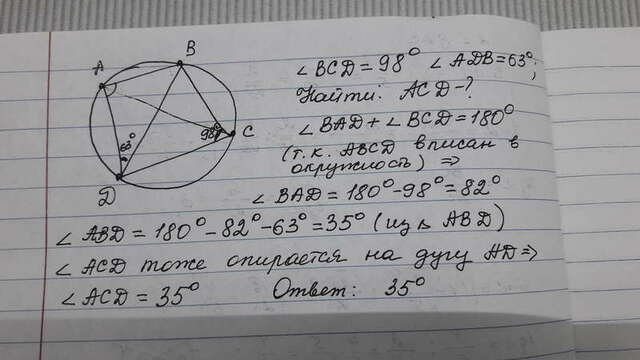 A
B
C
D
63°
98°
∠BCD = 98° ∠ADB = 63°;
Найти: ACD - ?
∠BAD + ∠BCD = 180°
(т.к. ABCD вписан в
окружность) ⇒
∠BAD = 180° - 98° = 82°
∠ABD = 180° - 82° - 63° = 35° (из △ ABD)
∠ACD тоже опирается на дугу AD ⇒
∠ACD = 35° Ответ: 35°